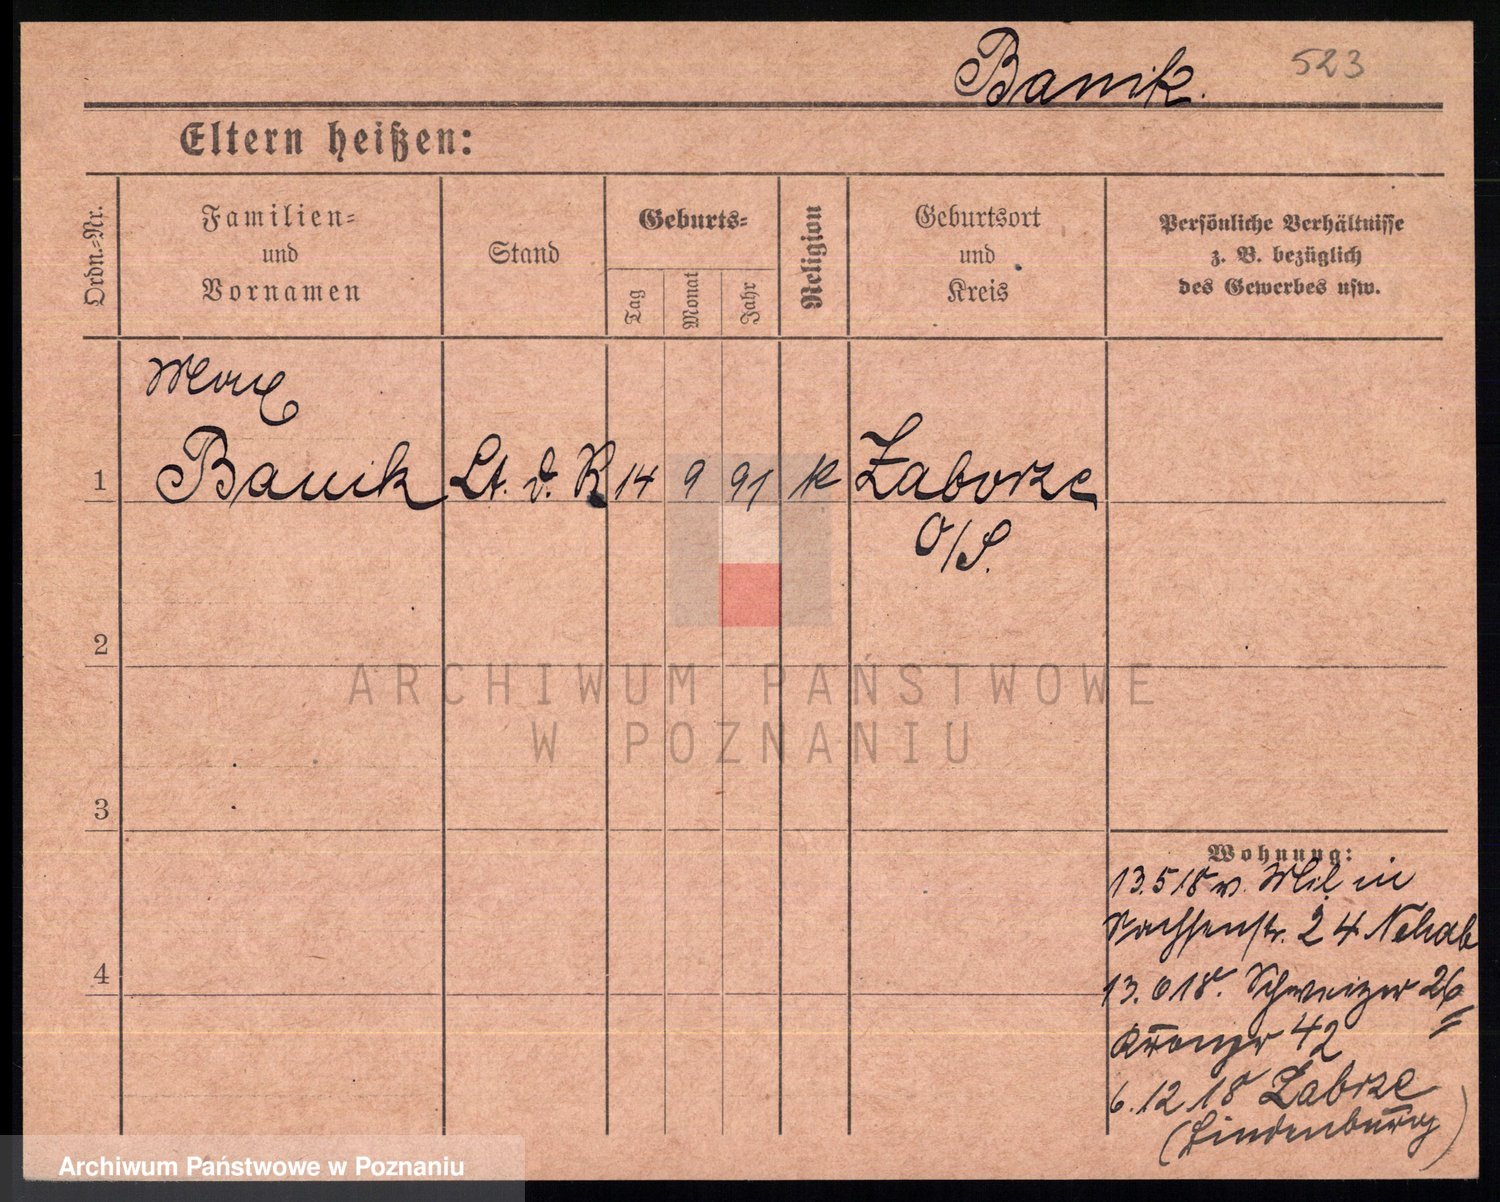 Banik. 523
Eltern heißen:
Ordn.=Nr.
Familien=
und
Vornamen
Stand
Geburts=
Tag
Monat
Jahr
Religion
Geburtsort
und
Kreis
Persönliche Verhältnisse
z. B. bezüglich
des Gewerbes usw.
Max
1 Banik Lt. d. R 14 9 91 K Zaborze
O/S.
2
ARCHIWUM PAŃSTWOWE
W POZNANIU
3
Wohnung:
13.5 18 v. Mil in
Sachsenstr. 24
4
13. 18. Schweizer 26
Kronpr 42
6.12 18 Zabrze
(Hindenburg)
Archiwum Państwowe w Poznaniu